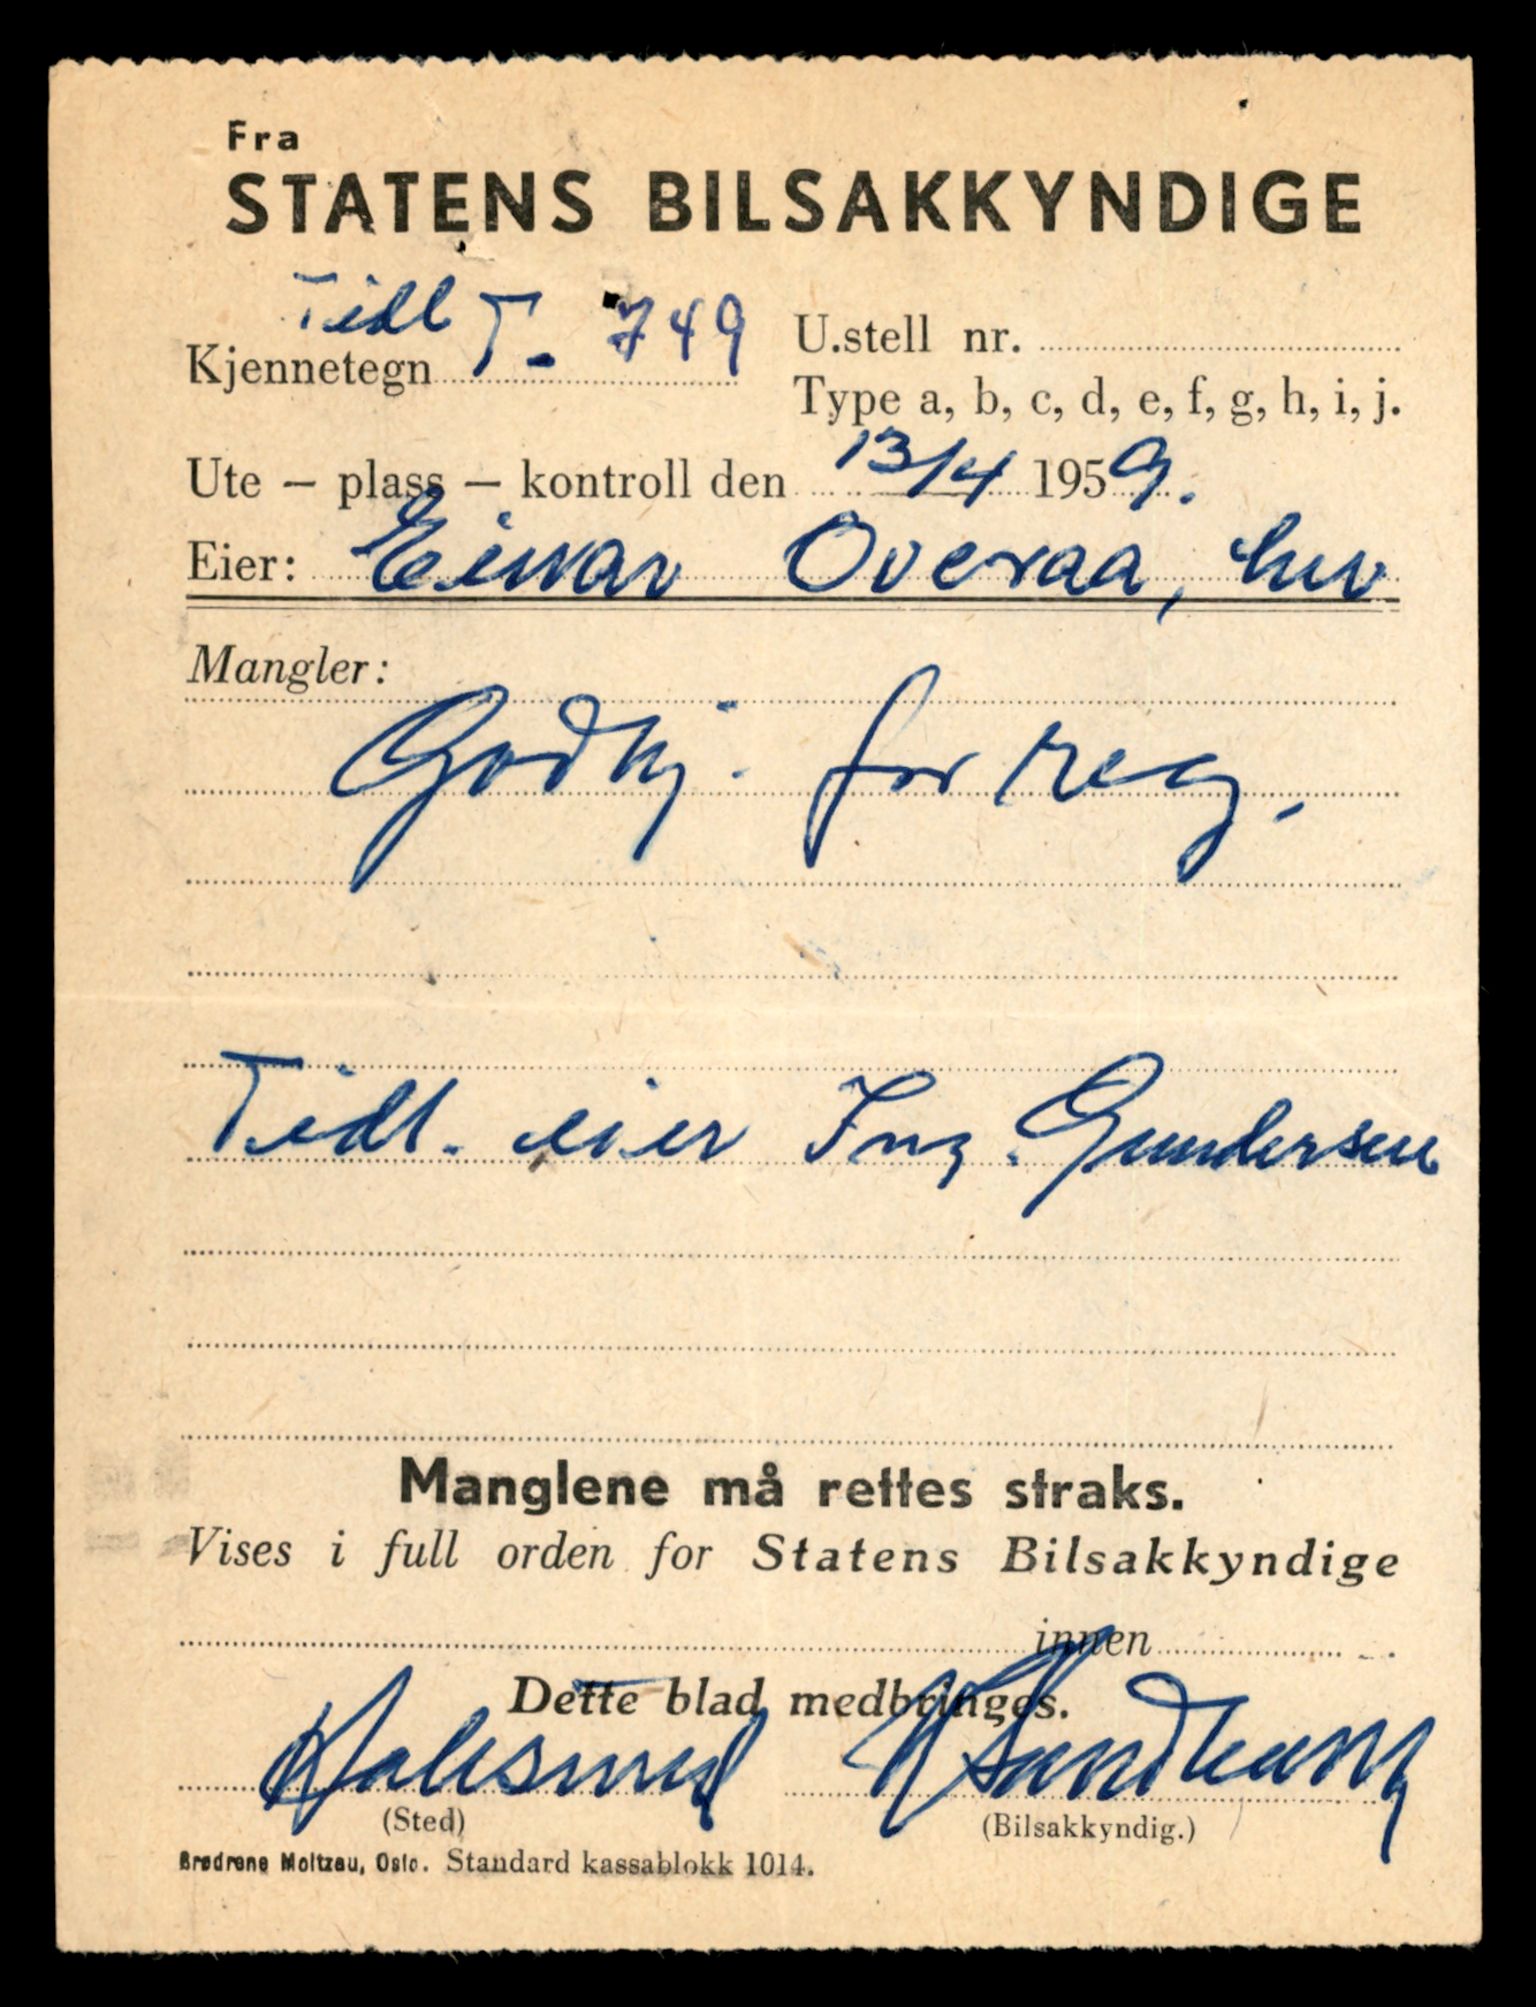 Fra
STATENS BILSAKKYNDIGE
Tidl
Kjennetegn T- 749
U.stell nr.
Type a, b, c, d, e, f, g, h, i, j.
Ute – plass – kontroll den 13/4 1959.
Eier: Eivar Overaa, her
Mangler:
Godkj. for reg.
Tidl. eier Ing. Gundersen
Manglene må rettes straks.
Vises i full orden for Statens Bilsakkyndige
innen
Dette blad medbringes.
(Sted)
(Bilsakkyndig.)
Brødrene Moltzau, Oslo. Standard kassablokk 1014.